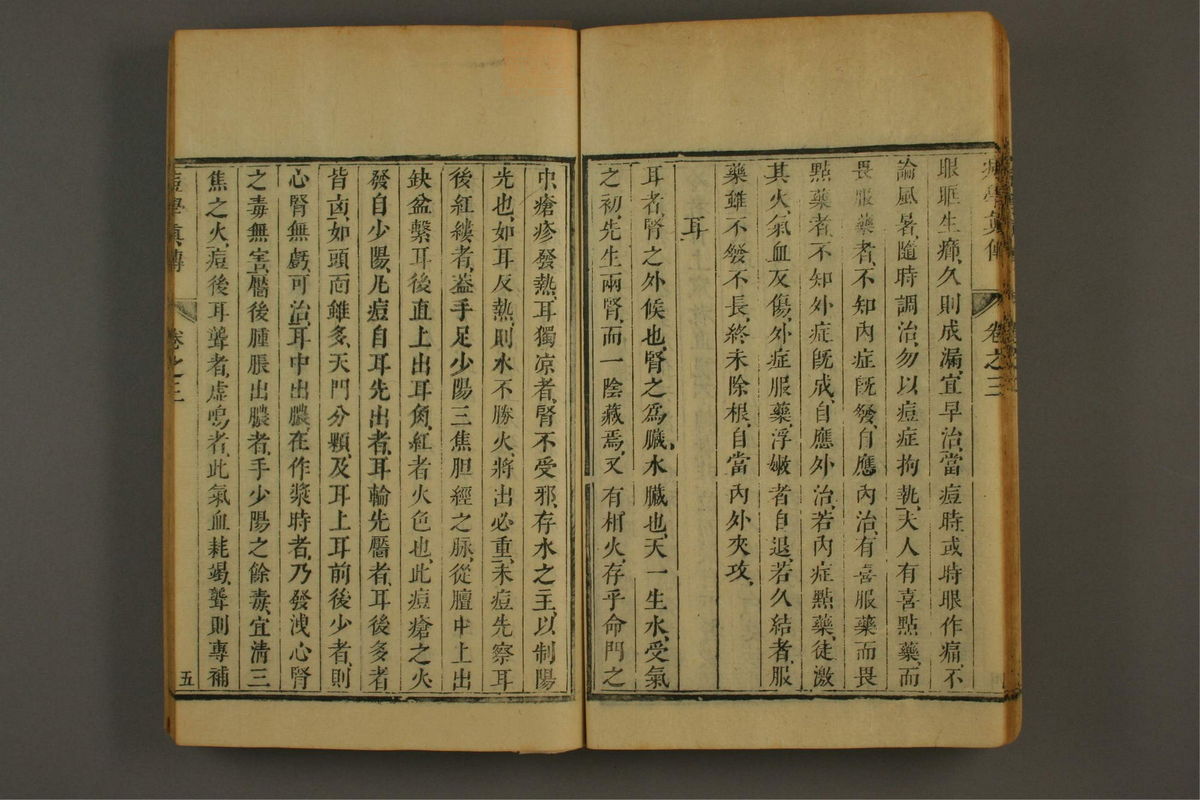 痘學眞傳　卷之三
眼眶生癤、久則成漏、宜早治、當痘時或時眼作痛、不
論風暑、隨時調治、勿以痘症拘執、夫人有喜點藥、而
畏服藥者、不知內症旣發、自應內治、有喜服藥而畏
點藥者、不知外症旣成、自應外治、若內症點藥、徒激
其火、氣血反傷、外症服藥、浮嫩者自退、若久結者、服
藥雖不發不長、終未除根、自當內外夾攻、
耳
耳者、腎之外候也、腎之爲臟、水臟也、天一生水、受氣
之初、先生兩腎、而一陰藏焉、又有相火、存乎命門之
中、瘡疹發熱、耳獨凉者、腎不受邪、存水之王、以制陽
光也、如耳反熱、則水不勝火、將出必重、未痘先察耳
後紅縷者、葢手足少陽三焦胆經之脉、從膻中上出
缺盆、繫耳後、直上出耳角、紅者火色也、此痘瘡之火
發自少陽、凡痘自耳先出者、耳輪先靨者、耳後多者
皆凶、如頭面雖多、天門分顆、及耳上耳前後少者、則
心腎無虧、可治、耳中出膿、在作漿時者、乃發洩心腎
之毒無害、靨後腫脹出膿者、手少陽之餘毒、宜淸三
焦之火、痘後耳聾者、虛鳴者、此氣血耗竭、聾則專補
痘學眞傳　卷之三　五